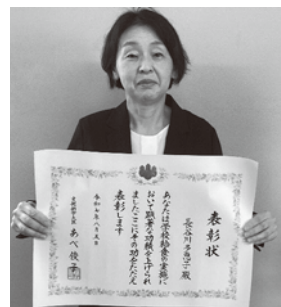 表彰状
長谷川多恵子殿
あなたは学校給食の実施に
おいて顕著な功績を上げられ
ましたここにその功をたたえ
表彰します
令和七年八月五日
文部科学大臣 あべ俊子